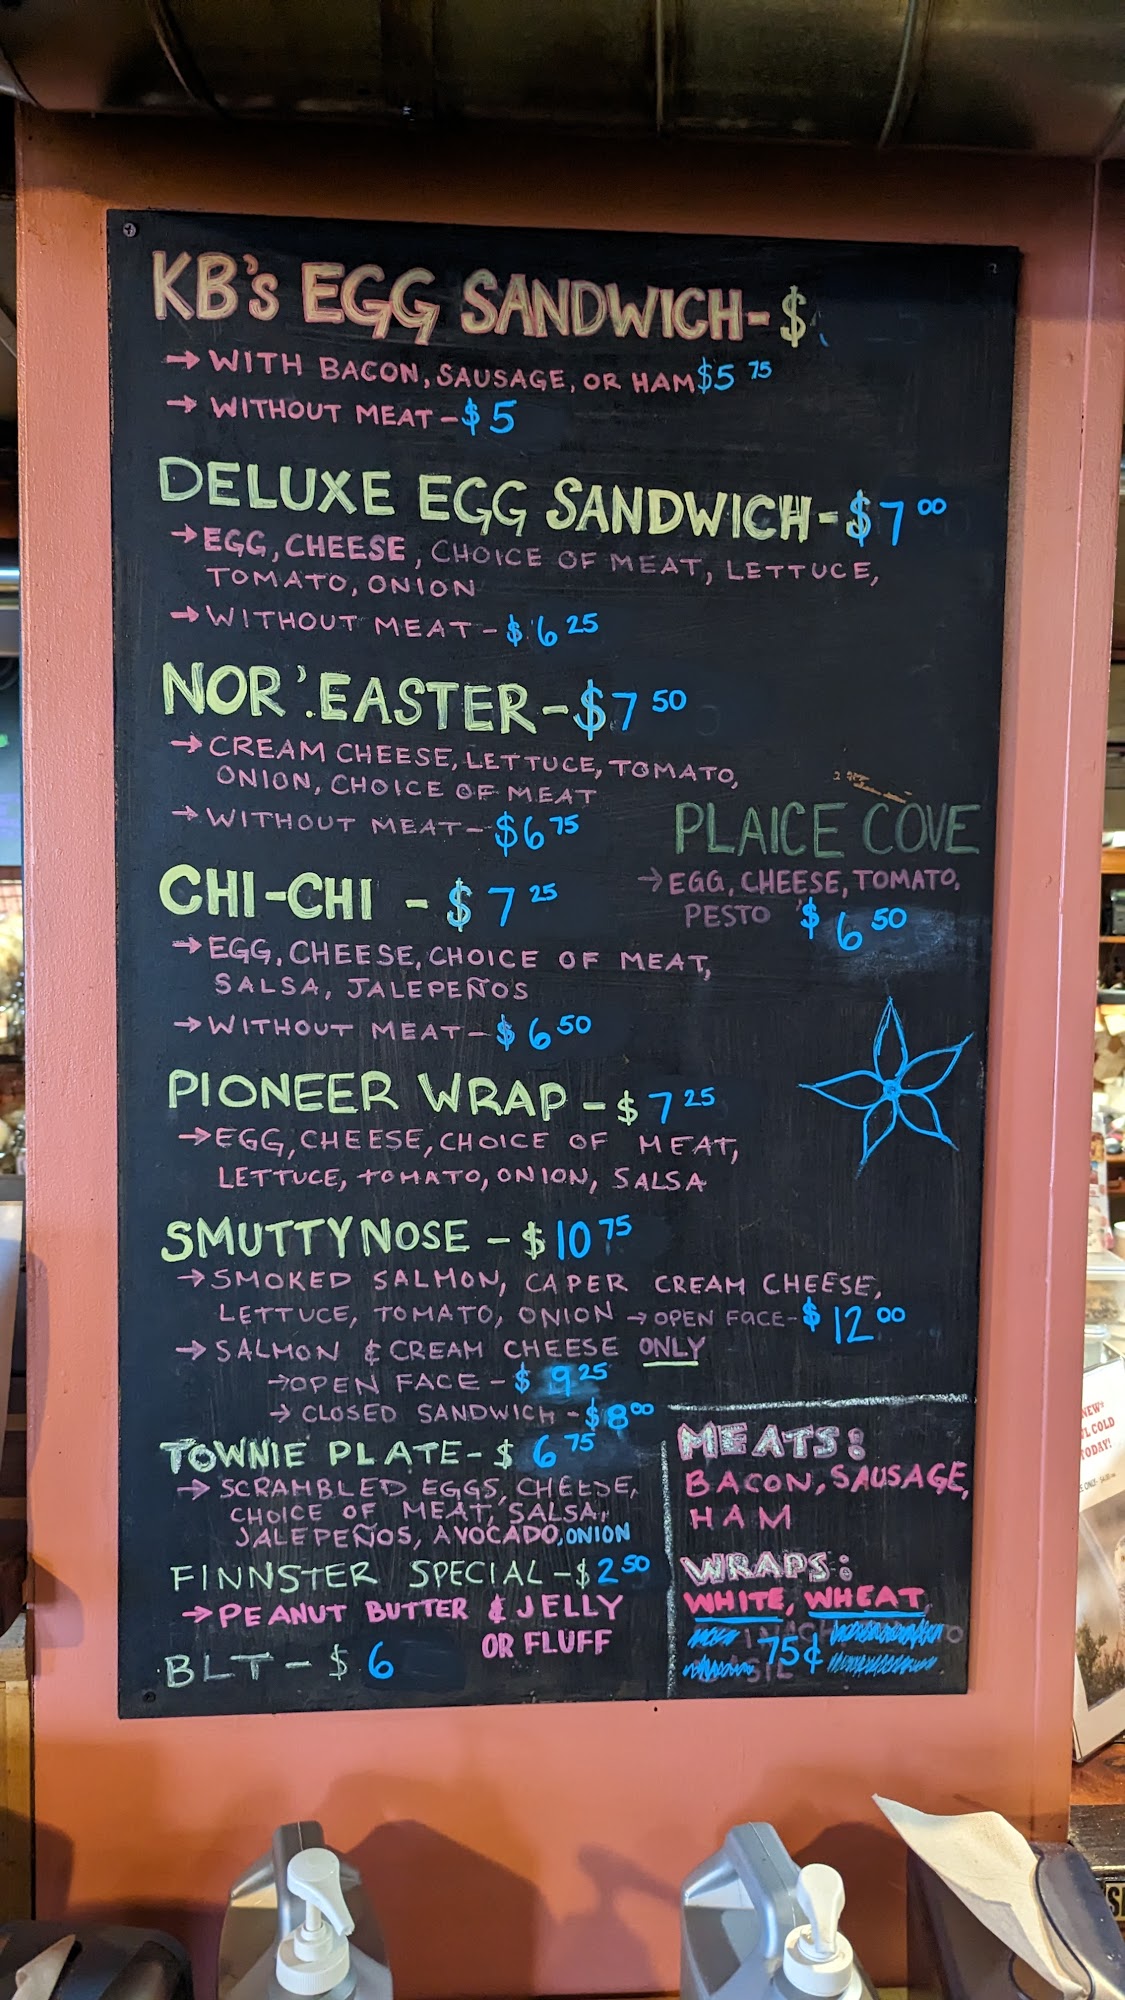 KB's EGG SANDWICH- $
→ WITH BACON, SAUSAGE, OR HAM $5 75
→ WITHOUT MEAT - $5
DELUXE EGG SANDWICH - $7 00
→ EGG, CHEESE, CHOICE OF MEAT, LETTUCE,
TOMATO, ONION
→ WITHOUT MEAT - $6 25
NOR'EASTER - $7 50
→ CREAM CHEESE, LETTUCE, TOMATO,
ONION, CHOICE OF MEAT
→ WITHOUT MEAT - $6 75
PLAICE COVE
→ EGG, CHEESE, TOMATO,
PESTO $6 50
CHI-CHI - $7 25
→ EGG, CHEESE, CHOICE OF MEAT,
SALSA, JALEPEÑOS
→ WITHOUT MEAT - $6 50
PIONEER WRAP - $7 25
→ EGG, CHEESE, CHOICE OF MEAT,
LETTUCE, TOMATO, ONION, SALSA
SMUTTYNOSE - $10 75
→ SMOKED SALMON, CAPER CREAM CHEESE,
LETTUCE, TOMATO, ONION → OPEN FACE - $12 00
→ SALMON & CREAM CHEESE ONLY
→ OPEN FACE - $9 25
→ CLOSED SANDWICH - $8 00
TOWNIE PLATE - $6 75
→ SCRAMBLED EGGS, CHEESE,
CHOICE OF MEAT, SALSA,
JALEPEÑOS, AVOCADO, ONION
FINNSTER SPECIAL - $2 50
→ PEANUT BUTTER & JELLY
OR FLUFF
BLT - $6
MEATS:
BACON, SAUSAGE,
HAM
WRAPS:
WHITE, WHEAT,
75¢
COLD
TODAY!